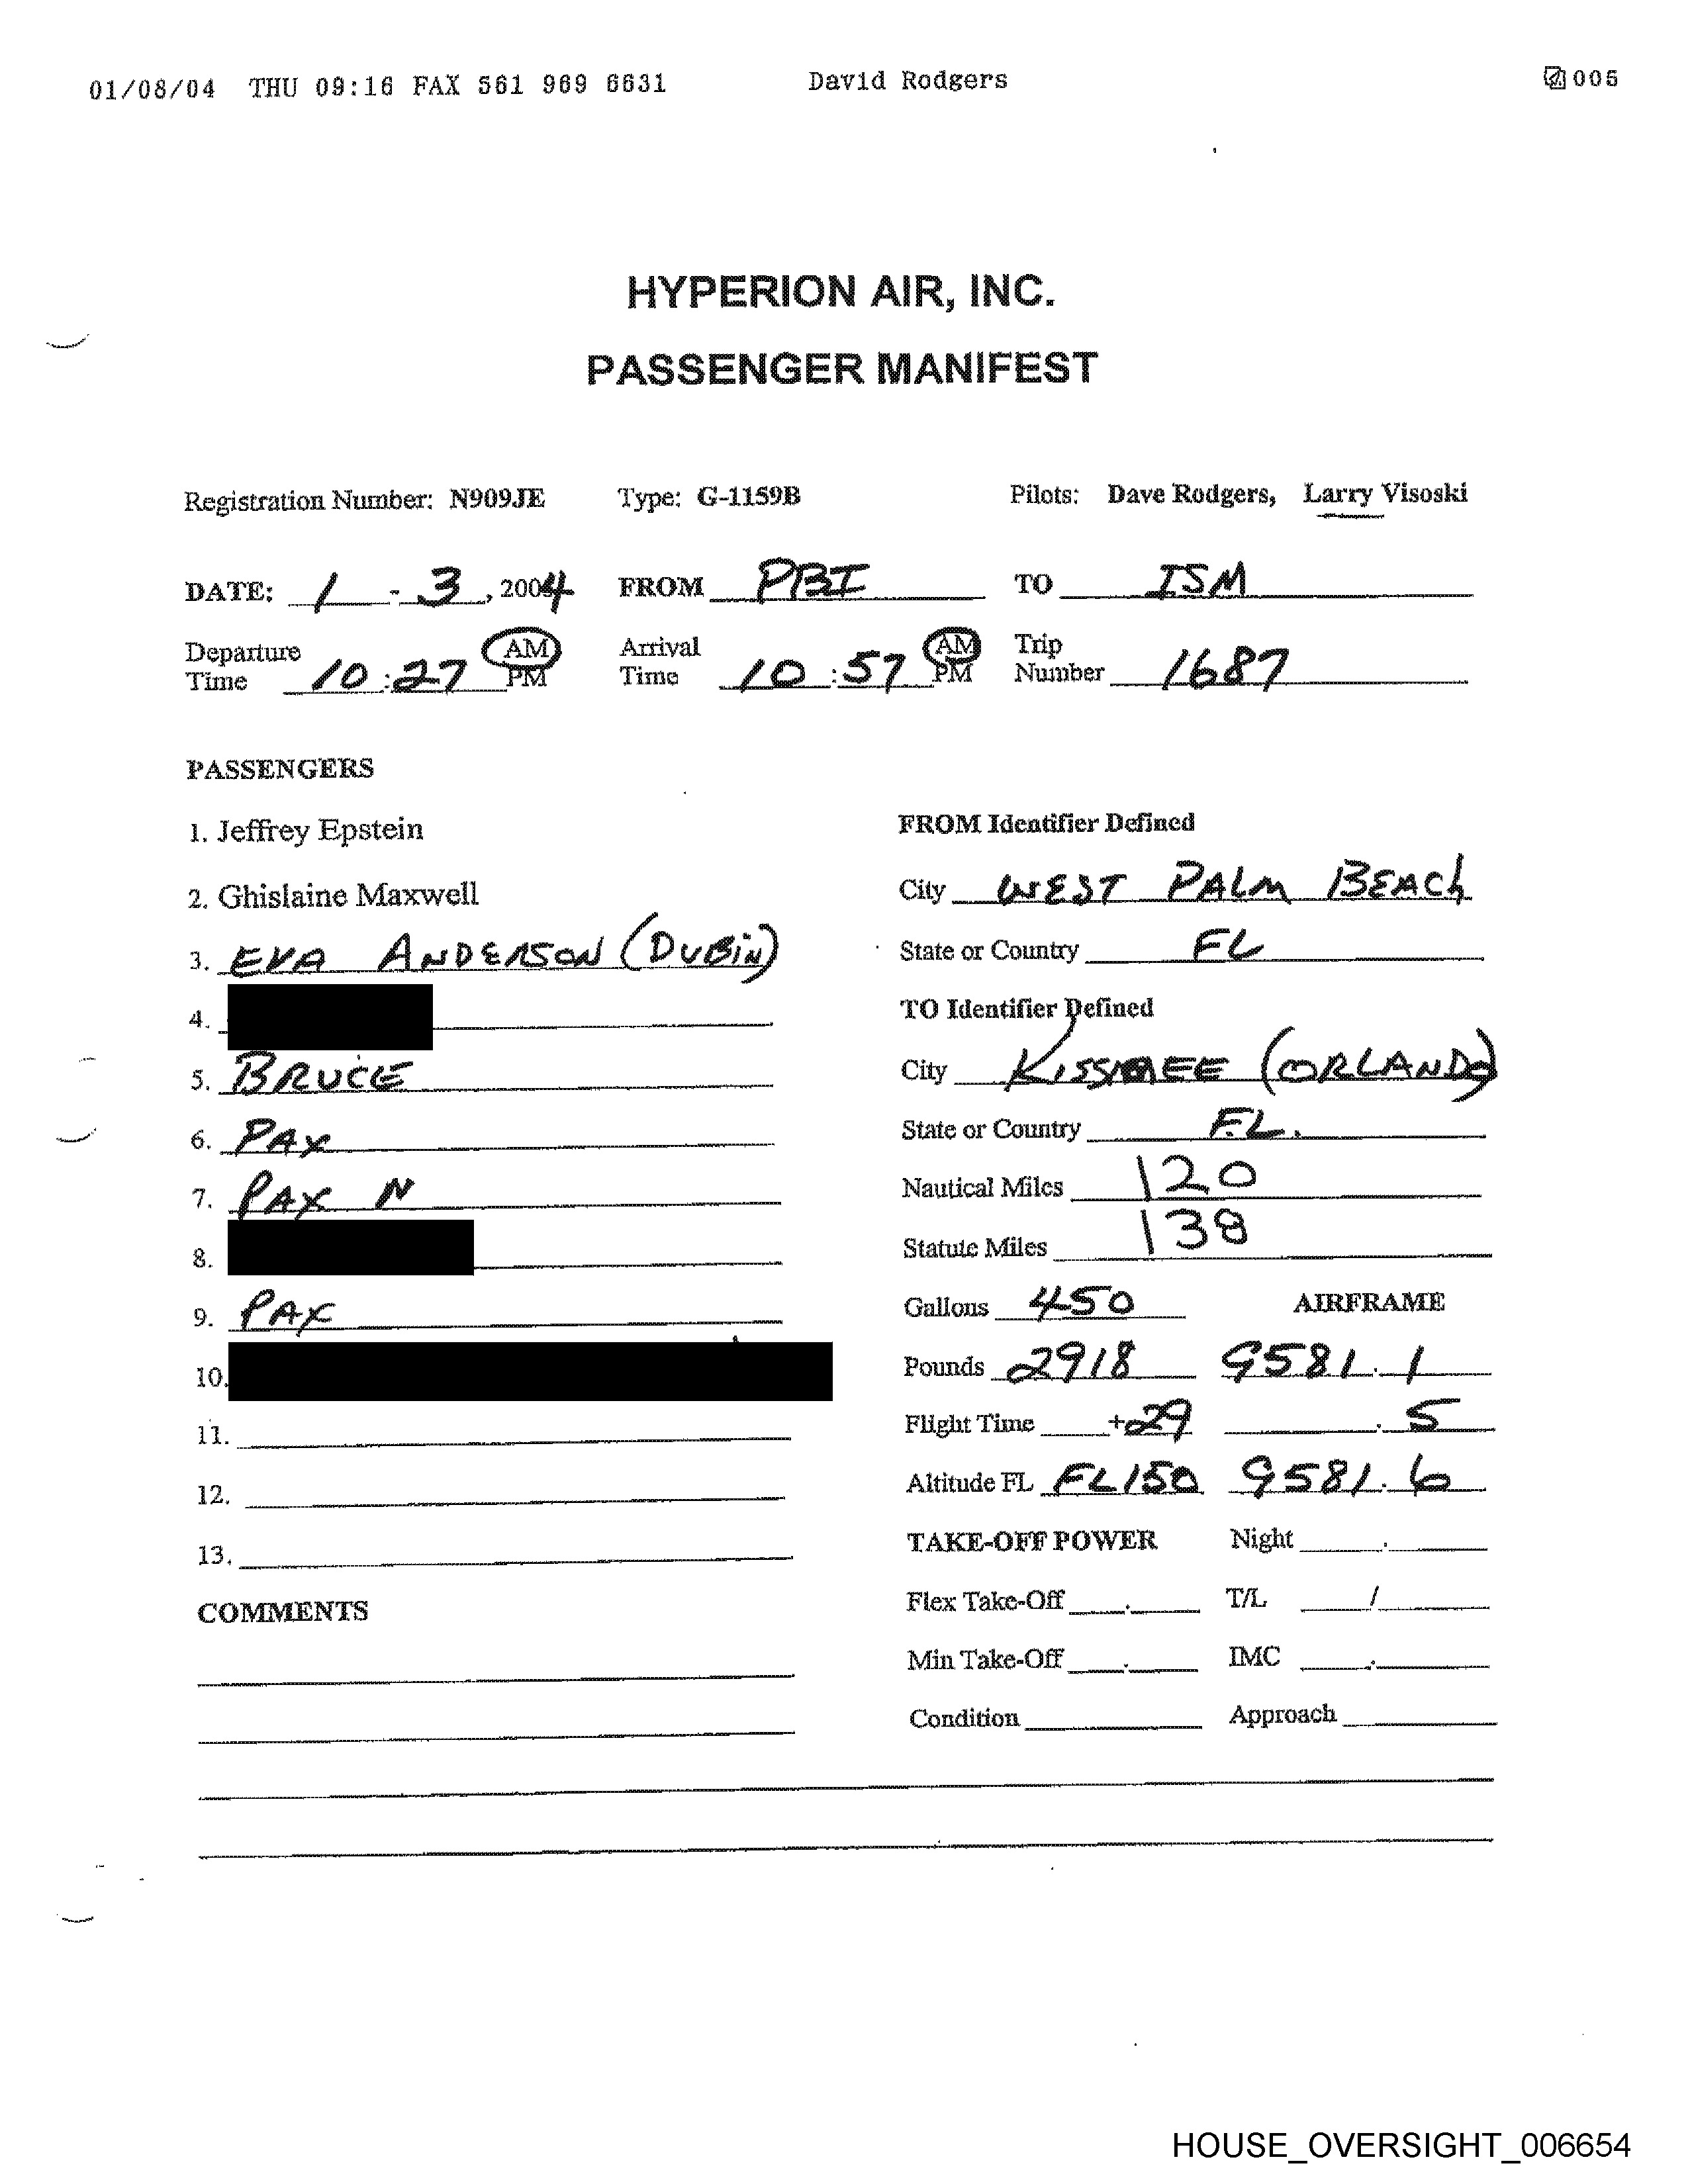 01/08/04 THU 09:16 FAX 561 969 6631 David Rodgers 005
HYPERION AIR, INC.
PASSENGER MANIFEST
Registration Number: N909JE Type: G-1159B Pilots: Dave Rodgers, Larry Visoski
DATE: 1 - 3, 2004 FROM PBI TO ISM
Departure Time 10:27 AM PM Arrival Time 10:57 AM PM Trip Number 1687
PASSENGERS
1. Jeffrey Epstein
2. Ghislaine Maxwell
3. EVA ANDERSON (DUBIN)
4.
5. BRUCE
6. PAX
7. PAX N
8.
9. PAX
10.
11.
12.
13.
COMMENTS
FROM Identifier Defined
City WEST PALM BEACH
State or Country FL
TO Identifier Defined
City KISSMEE (ORLANDO)
State or Country FL.
Nautical Miles 120
Statute Miles 138
Gallons 450 AIRFRAME
Pounds 2918 9581.1
Flight Time +29 .5
Altitude FL FL150 9581.6
TAKE-OFF POWER Night .
Flex Take-Off . T/L /
Min Take-Off . IMC .
Condition Approach
HOUSE_OVERSIGHT_006654